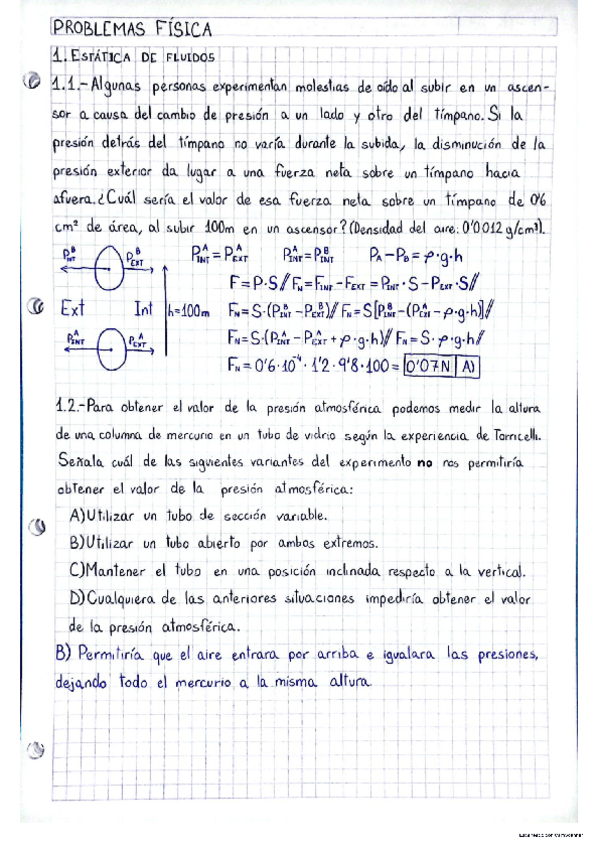 PROBLEMAS FÍSICA
1. ESTÁTICA DE FLUIDOS
1.1.- Algunas personas experimentan molestias de oído al subir en un ascen-
sor a causa del cambio de presión a un lado y otro del tímpano. Si la
presión detrás del tímpano no varía durante la subida, la disminución de la
presión exterior da lugar a una fuerza neta sobre un tímpano hacia
afuera. ¿Cuál sería el valor de esa fuerza neta sobre un tímpano de 0'6
cm² de área, al subir 100m en un ascensor? (Densidad del aire: 0'0012 g/cm³).
P_INT^B P_EXT^B P_INT^A = P_EXT^A P_INT^A = P_INT^B P_A - P_B = ρ·g·h
F = P·S // F_N = F_INT - F_EXT = P_INT·S - P_EXT·S //
Ext Int h=100m F_N = S·(P_INT^B - P_EXT^B) // F_N = S[P_INT^B - (P_EXT^A - ρ·g·h)] //
P_INT^A P_EXT^A F_N = S·(P_INT^A - P_EXT^A + ρ·g·h) // F_N = S·ρ·g·h //
F_N = 0'6·10⁻⁴·1'2·9'8·100 = 0'07N A)
1.2.- Para obtener el valor de la presión atmosférica podemos medir la altura
de una columna de mercurio en un tubo de vidrio según la experiencia de Torricelli.
Señala cuál de las siguientes variantes del experimento no nos permitiría
obtener el valor de la presión atmosférica:
A) Utilizar un tubo de sección variable.
B) Utilizar un tubo abierto por ambos extremos.
C) Mantener el tubo en una posición inclinada respecto a la vertical.
D) Cualquiera de las anteriores situaciones impediría obtener el valor
de la presión atmosférica.
B) Permitiría que el aire entrara por arriba e igualara las presiones,
dejando todo el mercurio a la misma altura.